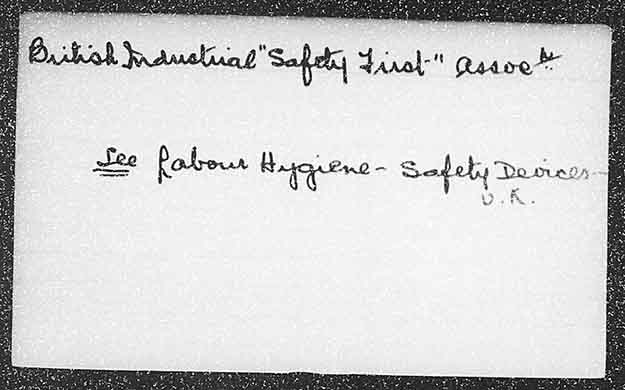 British Industrial "Safety First" Assoc
See Labour Hygiene - Safety Devices -
U.K.